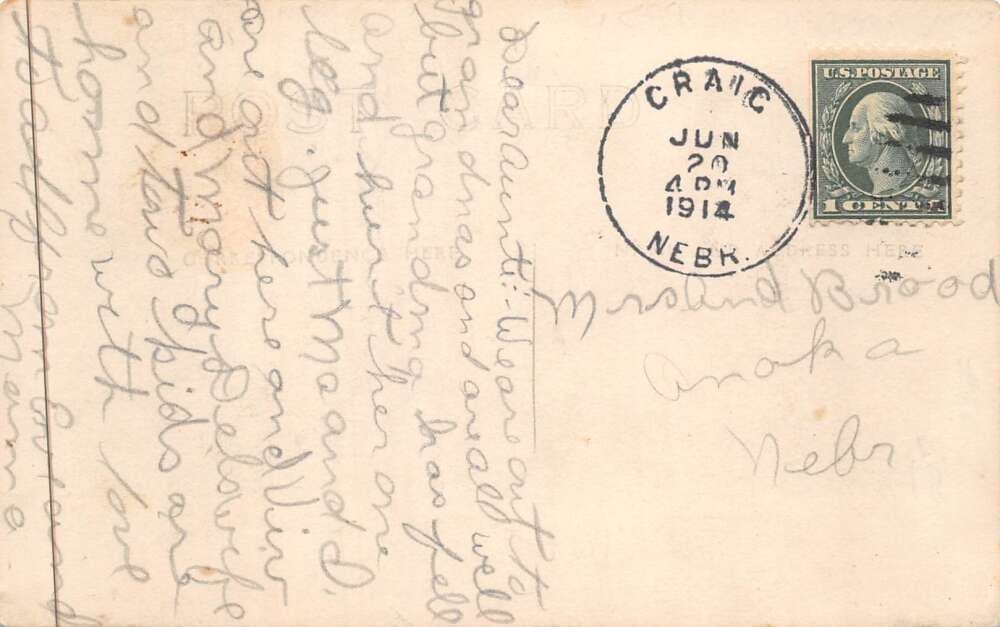 POST CARD
CORRESPONDENCE HERE
ADDRESS HERE
CRAIG
JUN
20
4 PM
1914
NEBR.
U.S. POSTAGE
1 CENT 1
Dear aunti:- We are out to
gran dmas and are all well
but grandma has fell
and hurt her one
leg. just Ma and D.
are out here and Viv
and Mary & Dels wife
and two kids are
home with love
to all
Mama
Mrs Brood
Anoka
Nebr